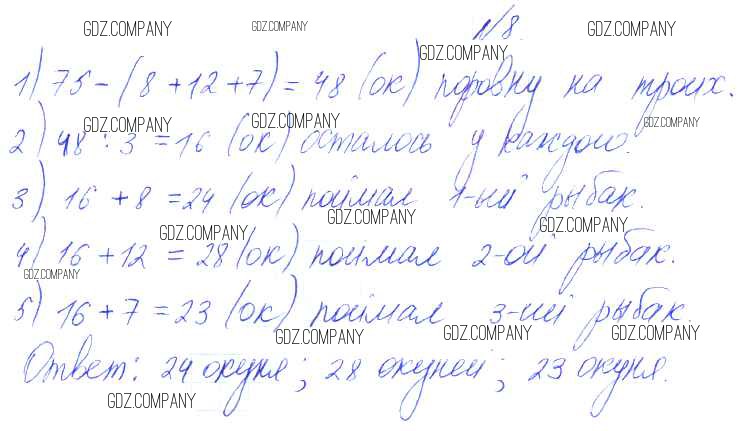 GDZ.COMPANY GDZ.COMPANY №8. GDZ.COMPANY
GDZ.COMPANY
1) 75 - (8 + 12 + 7) = 48 (ок) поровну на троих.
GDZ.COMPANY GDZ.COMPANY GDZ.COMPANY
2) 48 : 3 = 16 (ок) осталось у каждого.
3) 16 + 8 = 24 (ок) поймал 1-ый рыбак.
GDZ.COMPANY GDZ.COMPANY GDZ.COMPANY
4) 16 + 12 = 28 (ок) поймал 2-ой рыбак.
GDZ.COMPANY
5) 16 + 7 = 23 (ок) поймал 3-ий рыбак.
GDZ.COMPANY GDZ.COMPANY GDZ.COMPANY
Ответ: 24 окуня; 28 окуней; 23 окуня.
GDZ.COMPANY